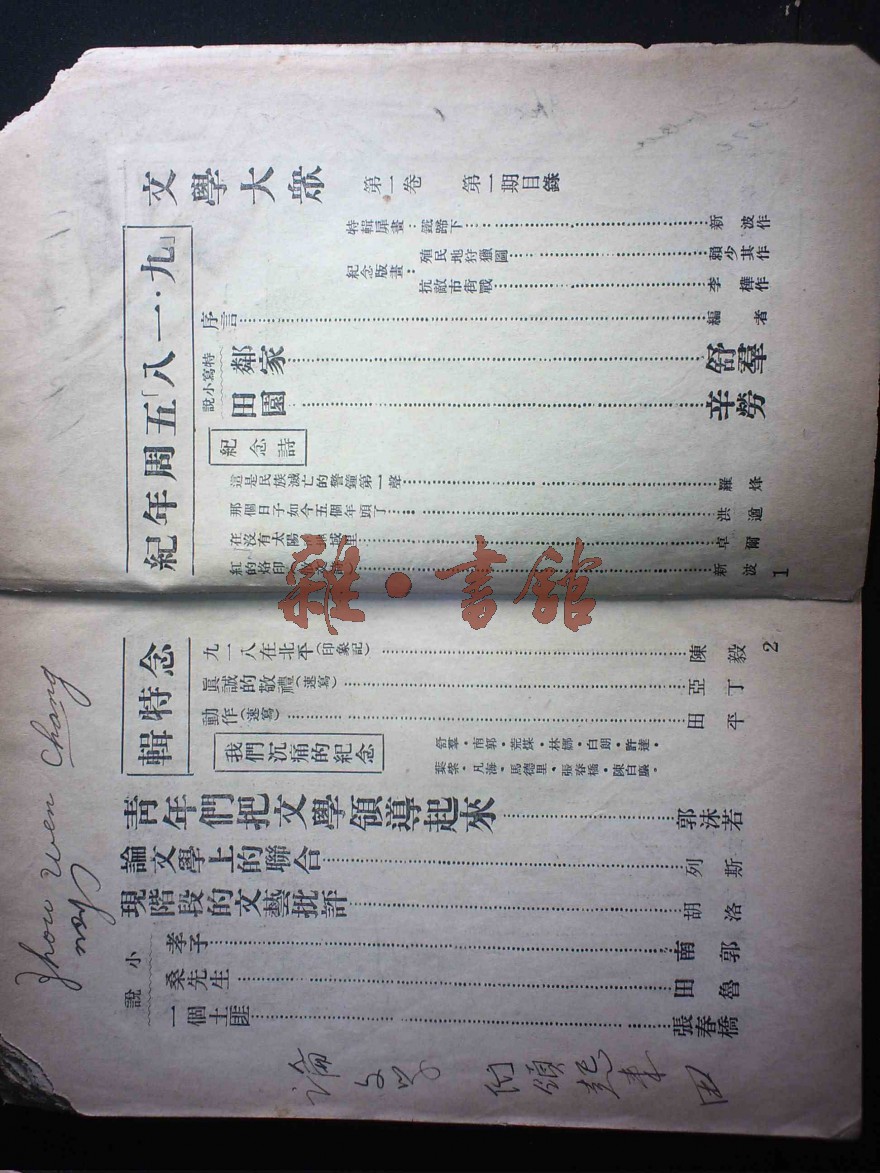 文學大眾 第一卷 第一期目錄
「九·一八」五周年紀念特輯
特輯扉畫：鐵蹄下 新波作
紀念版畫：
殖民地狩獵圖 賴少其作
抗敵市街戰 李樺作
序言 編者
特寫小說
鄰家 舒羣
田園 辛勞
紀念詩
這是民族滅亡的警鐘第一聲 羅烽
那個日子如今五個年頭了 洪遒
在沒有太陽 里 卓爾
紅的烙印 新波
1
九一八在北平（印象記） 陳毅
真誠的敬禮（速寫） 亞丁
動作（速寫） 田平
2
我們沉痛的紀念
舒羣·南郭·荒煤·林娜·白朗·許達·
葉紫·凡海·馬德里·張春橋·陳白塵·
青年們把文學領導起來 郭沫若
論文學上的聯合 列斯
現階段的文藝批評 胡洛
小說
孝子 南郭
桑先生 田魯
一個土匪 張春橋
Zhou Wen Chang
論文學
領起來